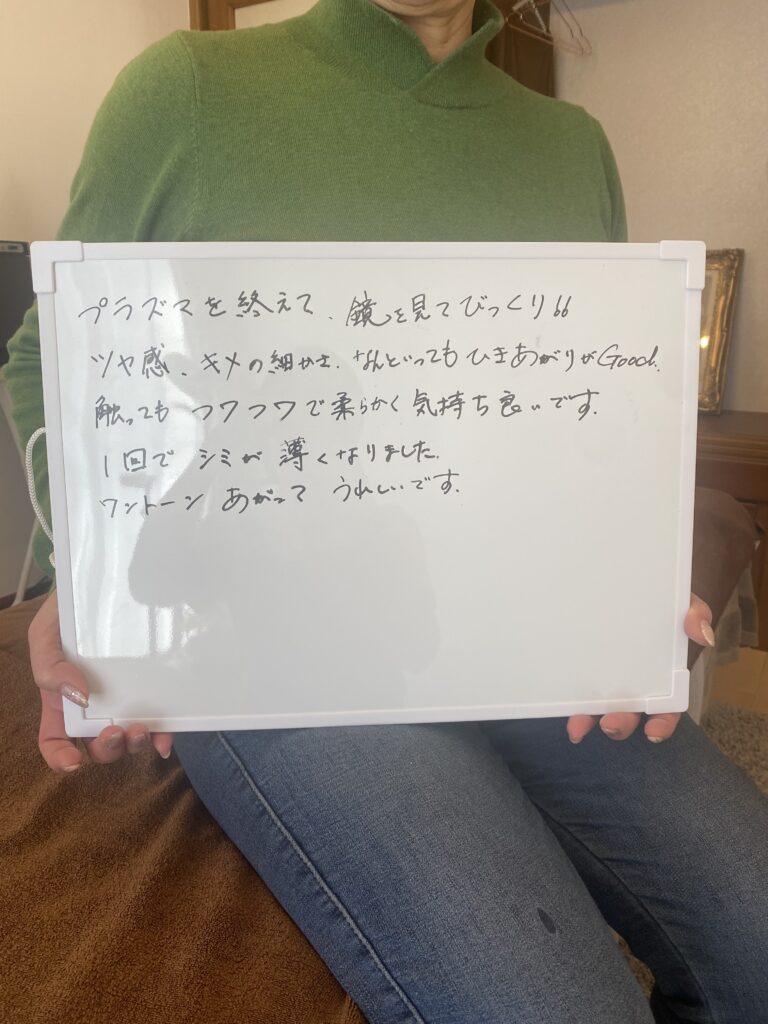 プラズマを終えて、鏡を見てびっくり!!
ツヤ感、キメの細かさ、なんといってもひきあがりがGood.
触ってもツワツワで柔らかく気持ち良いです。
1回でシミが薄くなりました。
ワントーンあがって うれしいです。